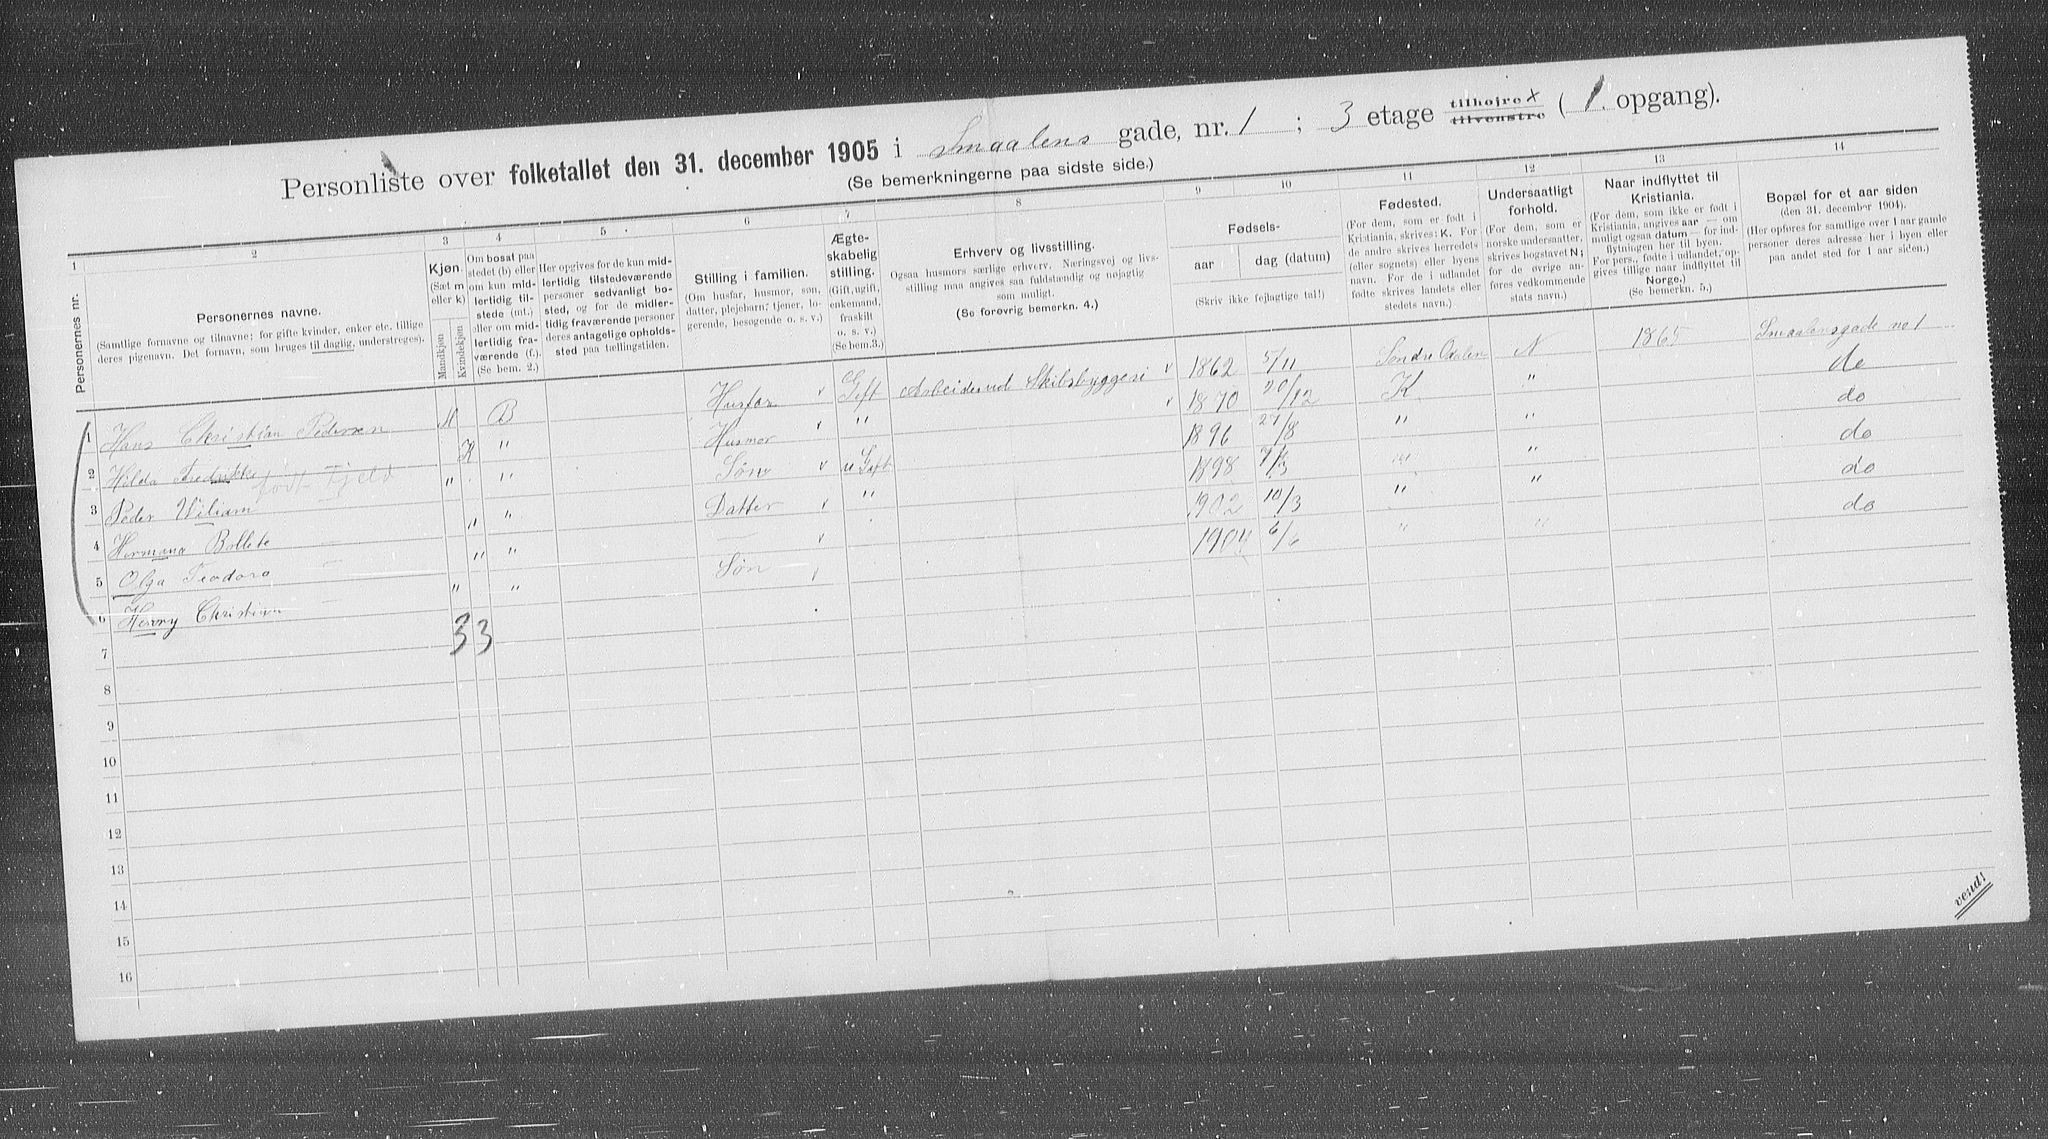 Personliste over folketallet den 31. december 1905 i Smaalens gade, nr. 1 ; 3 etage tilhøjre x tilvenstre ( 1. opgang).
(Se bemerkningerne paa sidste side.)
1 2 3 4 5 6 7 8 9 10 11 12 13 14
Personernes nr.
Personernes navne.
(Samtlige fornavne og tilnavne; for gifte kvinder, enker etc. tillige deres pigenavn. Det fornavn, som bruges til daglig, understreges).
Kjøn. (Sæt m eller k)
Mandkjøn Kvindekjøn
Om bosat paa stedet (b) eller om kun midlertidig tilstede (mt.) eller om midlertidig fraværende (f.). (Se bem. 2.)
Her opgives for de kun midlertidig tilstedeværende personer sedvanligt bosted, og for de midlertidig fraværende personer deres antagelige opholdssted paa tællingstiden.
Stilling i familien.
(Om husfar, husmor, søn, datter, plejebarn, tjener, logerende, besøgende o. s. v.)
Ægteskabelig stilling.
(Gift, ugift, enkemand, fraskilt o. s. v.) (Se bem. 3.)
Erhverv og livsstilling.
Ogsaa husmors særlige erhverv. Næringsvej og livsstilling maa angives saa fuldstændig og nøjagtig som muligt.
(Se forøvrig bemerkn. 4.)
Fødsels-
aar dag (datum)
(Skriv ikke fejlagtige tal!)
Fødested.
(For dem, som er født i Kristiania, skrives: K. For de andre skrives herredets (eller sognets) eller byens navn. For de i udlandet fødte skrives landets eller stedets navn.)
Undersaatligt forhold.
(For dem, som er norske undersaatter, skrives bogstavet N; for de øvrige anføres vedkommende stats navn.)
Naar indflyttet til Kristiania.
(For dem, som ikke er født i Kristiania, angives aar — om muligt ogsaa datum — for indflytningen her til byen. For pers., fødte i udlandet, opgives tillige naar indflyttet til Norge.) (Se bemerkn. 5.)
Bopæl for et aar siden
(den 31. december 1904).
(Her opføres for samtlige over 1 aar gamle personer deres adresse her i byen eller paa andet sted for 1 aar siden.)
1 Hans Christian Pedersen M B Husfar Gift Arbeider ved Skibsbyggeri 1862 5/11 Søndre Odalen N 1865 Smaalensgade no 1
2 Hilda Fredrikke født Fjeld K " Husmor " 1870 20/12 K " do
3 Peder Viliam " " Søn u Gift 1896 27/8 " " do
4 Hermana Bollete " " Datter " 1898 " " do
5 Olga Teodora " " — 1902 10/3 " " do
6 Henry Christian " " Søn 1904 6/6 " " do
7 3 3
8
9
10
11
12
13
14
15
16
vend!